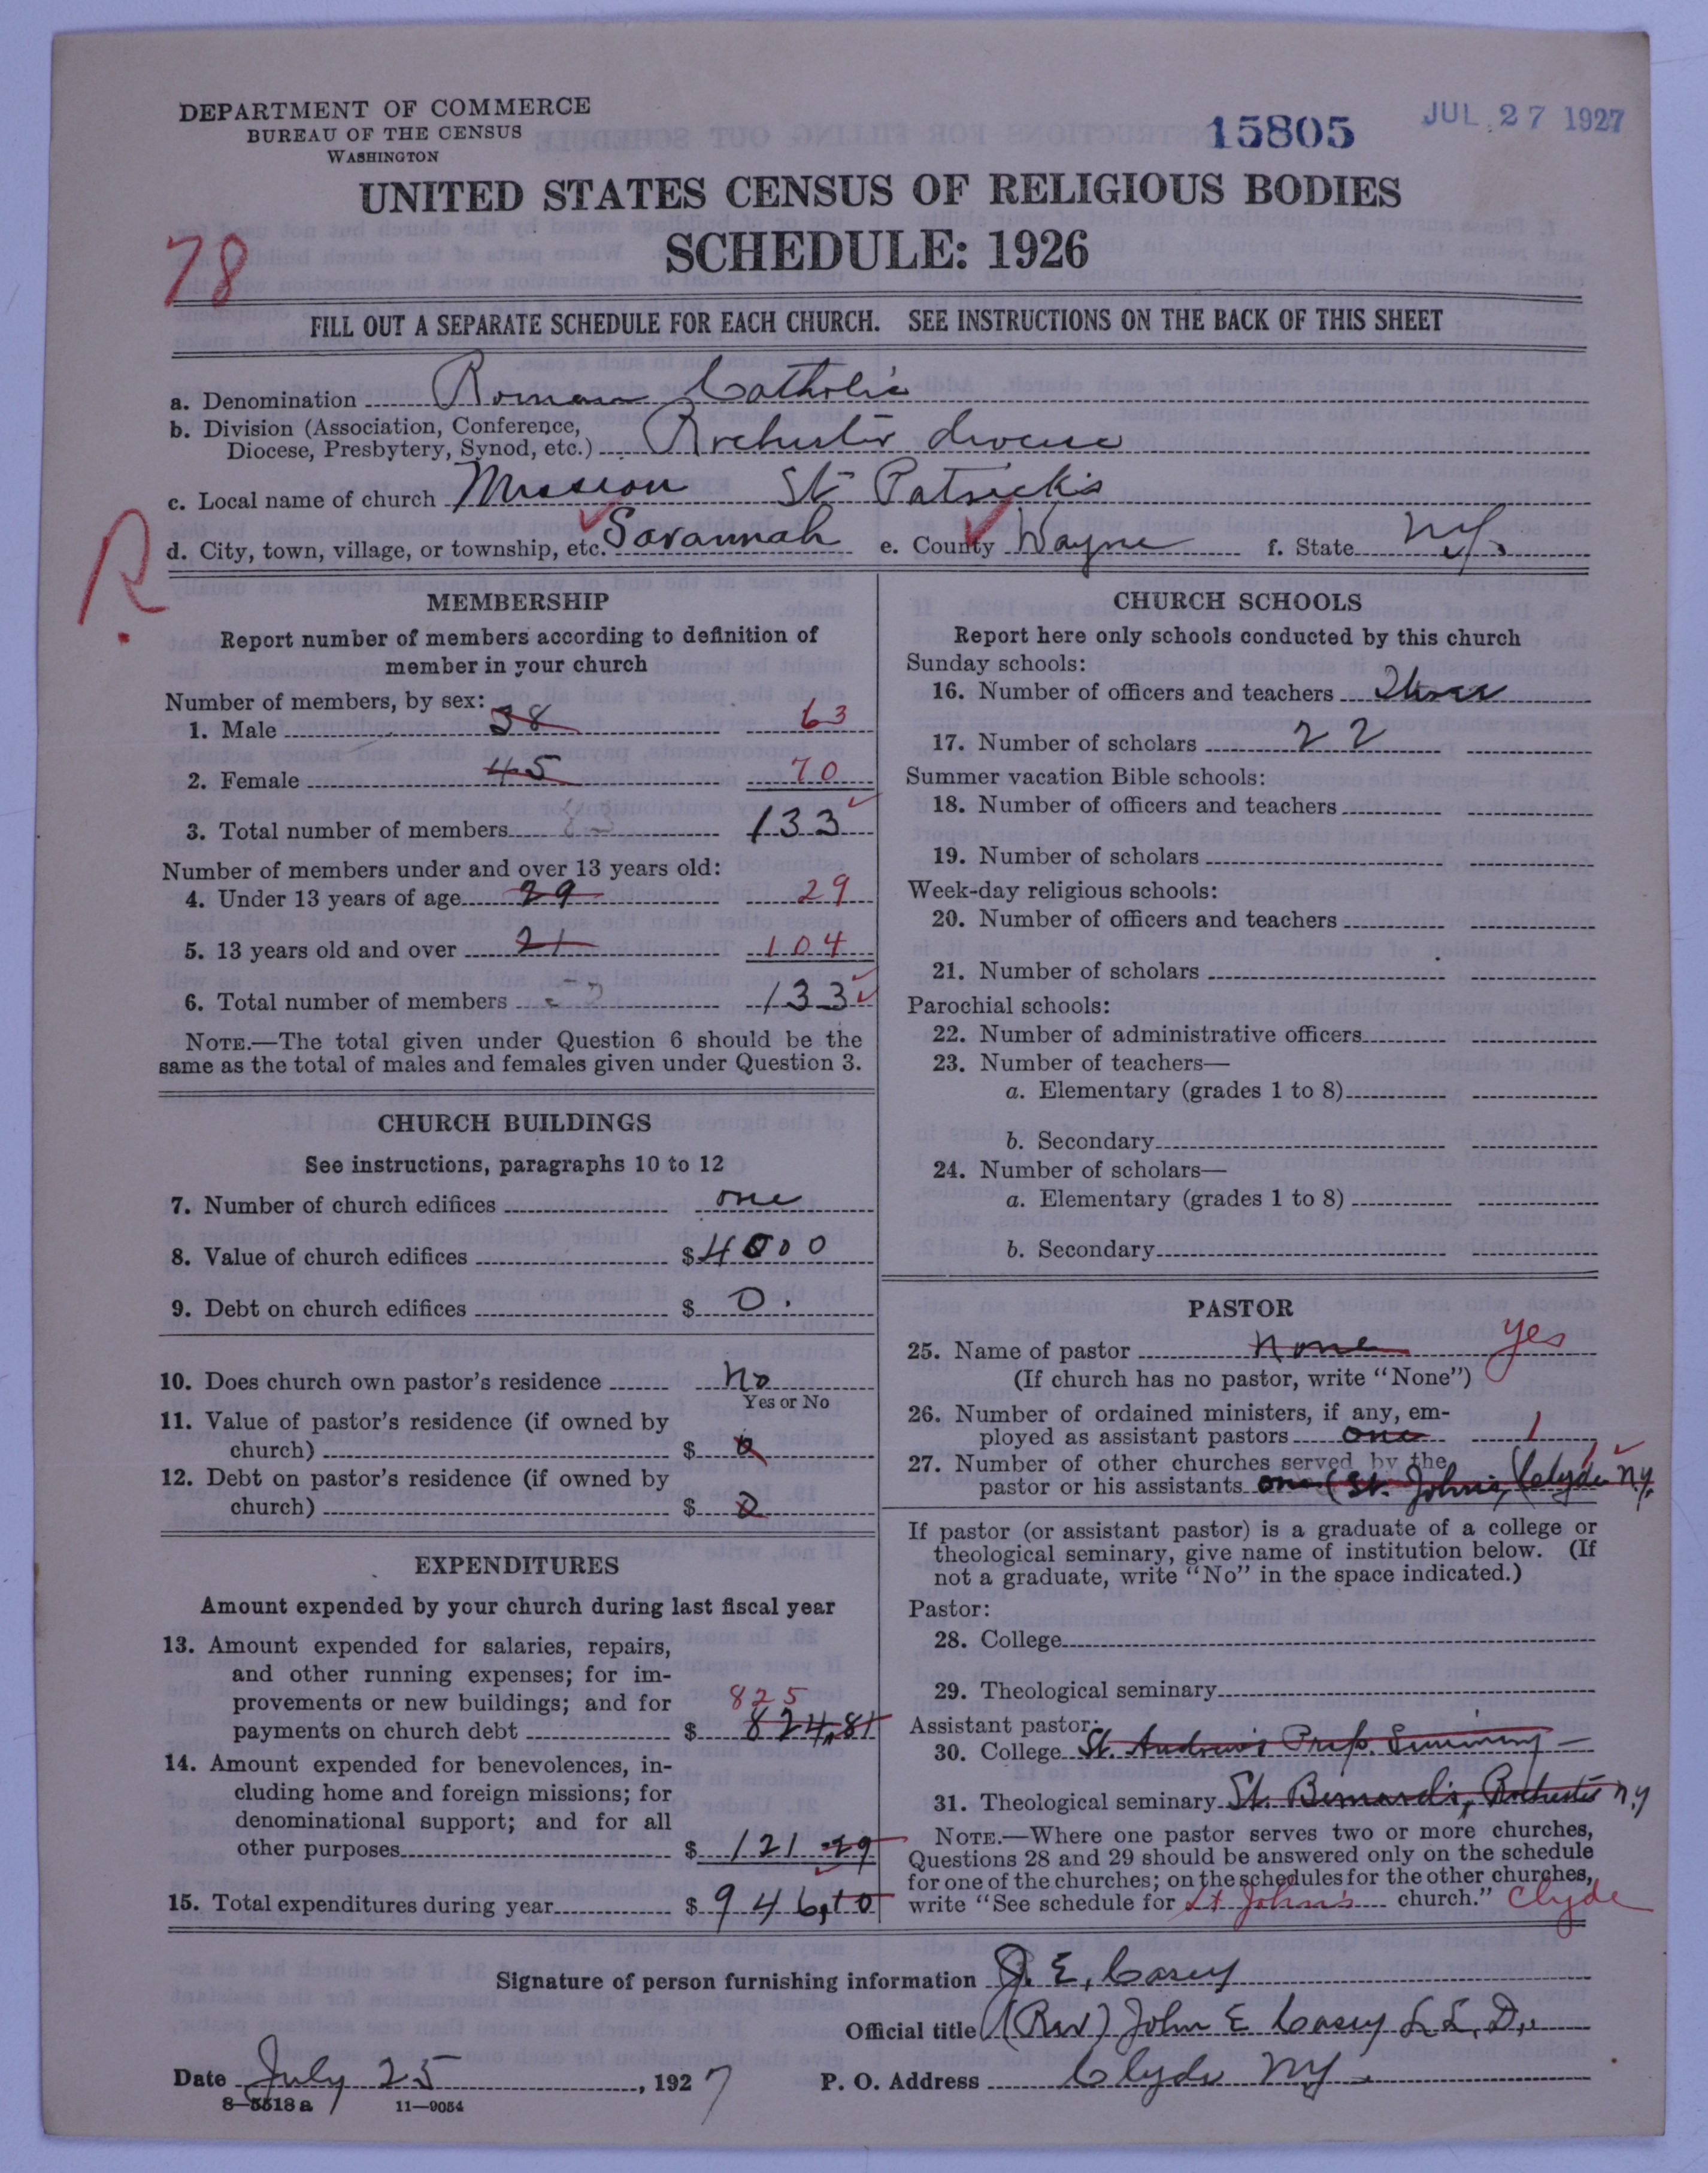 DEPARTMENT OF COMMERCE
BUREAU OF THE CENSUS
WASHINGTON
15805
JUL 27 1927
UNITED STATES CENSUS OF RELIGIOUS BODIES
SCHEDULE: 1926
78
FILL OUT A SEPARATE SCHEDULE FOR EACH CHURCH. SEE INSTRUCTIONS ON THE BACK OF THIS SHEET
a. Denomination Roman Catholic
b. Division (Association, Conference,
Diocese, Presbytery, Synod, etc.) Rochester diocese
c. Local name of church Mission St Patrick's
d. City, town, village, or township, etc. Savannah e. County Wayne f. State N.Y.
R.
MEMBERSHIP
Report number of members according to definition of
member in your church
Number of members, by sex:
1. Male 38 63
2. Female 45 70
3. Total number of members 133
Number of members under and over 13 years old:
4. Under 13 years of age 29 29
5. 13 years old and over 21 104
6. Total number of members 133
NOTE.—The total given under Question 6 should be the
same as the total of males and females given under Question 3.
CHURCH BUILDINGS
See instructions, paragraphs 10 to 12
7. Number of church edifices one
8. Value of church edifices $4000
9. Debt on church edifices $ 0.
10. Does church own pastor's residence No
Yes or No
11. Value of pastor's residence (if owned by
church) $ 0
12. Debt on pastor's residence (if owned by
church) $ 0
EXPENDITURES
Amount expended by your church during last fiscal year
13. Amount expended for salaries, repairs,
and other running expenses; for im-
provements or new buildings; and for 825
payments on church debt $ 824.81
14. Amount expended for benevolences, in-
cluding home and foreign missions; for
denominational support; and for all
other purposes $ 121.29
15. Total expenditures during year $ 946.10
CHURCH SCHOOLS
Report here only schools conducted by this church
Sunday schools:
16. Number of officers and teachers Three
17. Number of scholars 22
Summer vacation Bible schools:
18. Number of officers and teachers
19. Number of scholars
Week-day religious schools:
20. Number of officers and teachers
21. Number of scholars
Parochial schools:
22. Number of administrative officers
23. Number of teachers—
a. Elementary (grades 1 to 8)
b. Secondary
24. Number of scholars—
a. Elementary (grades 1 to 8)
b. Secondary
PASTOR
25. Name of pastor None yes
(If church has no pastor, write "None")
26. Number of ordained ministers, if any, em-
ployed as assistant pastors one 1
27. Number of other churches served by the
pastor or his assistants one (St. John's, Clyde N.Y. 1
If pastor (or assistant pastor) is a graduate of a college or
theological seminary, give name of institution below. (If
not a graduate, write "No" in the space indicated.)
Pastor:
28. College
29. Theological seminary
Assistant pastor:
30. College St. Andrew's Prep. Seminary
31. Theological seminary St. Bernard's, Rochester N.Y
NOTE.—Where one pastor serves two or more churches,
Questions 28 and 29 should be answered only on the schedule
for one of the churches; on the schedules for the other churches,
write "See schedule for St John's church." Clyde
Signature of person furnishing information J. E. Casey
Official title (Rev) John E Casey L.L.D.
Date July 25, 1927 P. O. Address Clyde N.Y.
8—5518a 11—9054